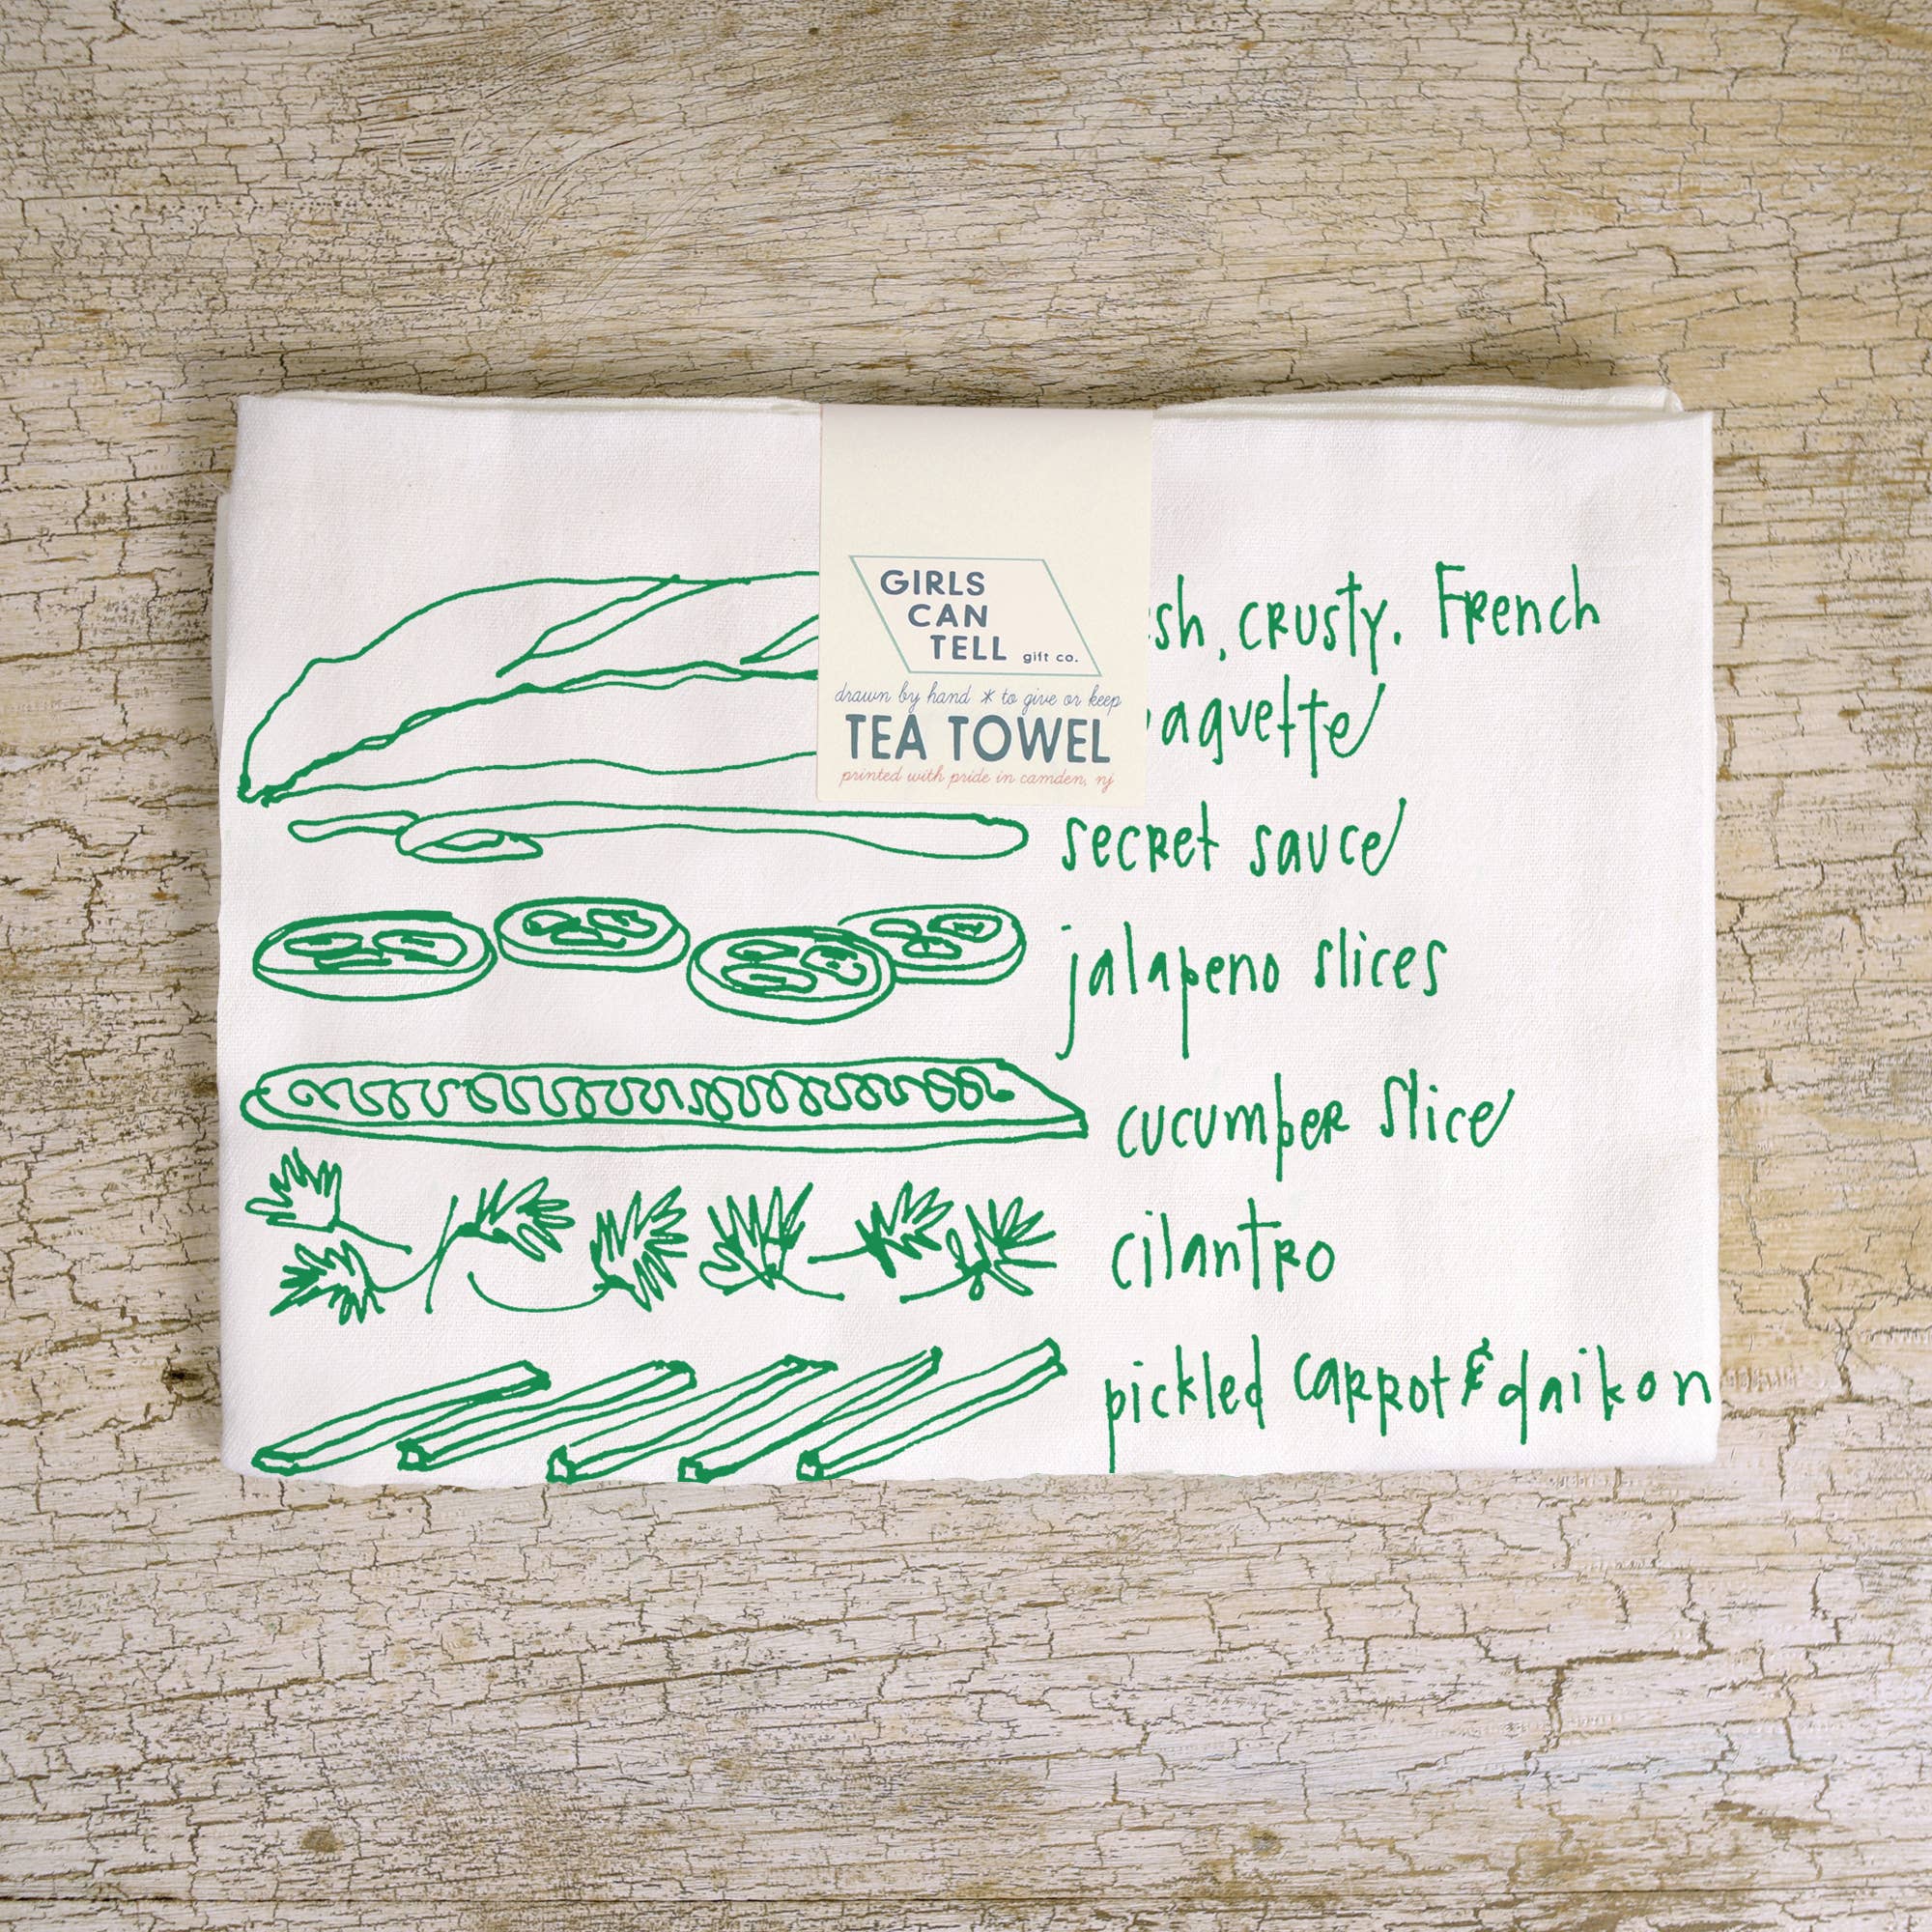 GIRLS
CAN
TELL gift co.
drawn by hand * to give or keep
TEA TOWEL
printed with pride in camden, nj
sh, crusty. French
aguette
secret sauce
jalapeno slices
cucumber slice
cilantro
pickled carrot & daikon